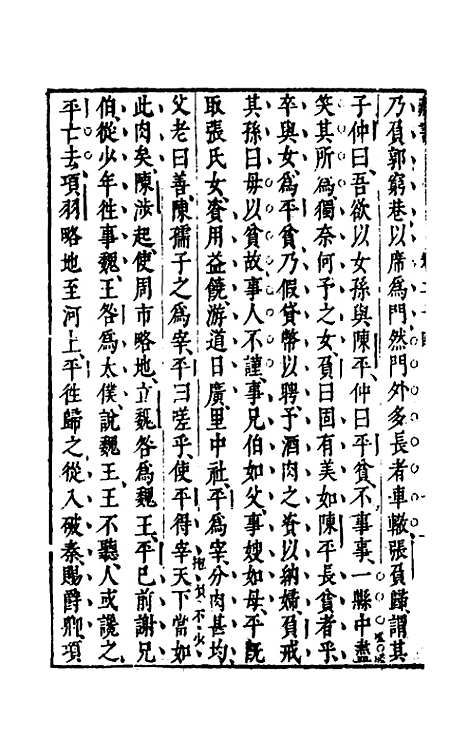 乃負郭窮巷以席為門然門外多長者車轍張負歸謂其
子仲曰吾欲以女孫與陳平仲曰平貧不事事一縣中盡
笑其所為獨奈何予之女負曰固有美如陳平長貧者乎
卒與女為平貧乃假貸幣以聘予酒肉之資以納婦負戒
其孫曰毋以貧故事人不謹事兄伯如父事嫂如母平既
取張氏女資用益饒游道日廣里中社平為宰分肉甚均
父老曰善陳孺子之為宰平曰嗟乎使平得宰天下當如
抱負不少
此肉矣陳涉起使周市略地立魏咎為魏王平已前謝兄
伯從少年往事魏王咎為太僕說魏王王不聽人或讒之
平亡去項羽略地至河上平往歸之從入破秦賜爵卿項